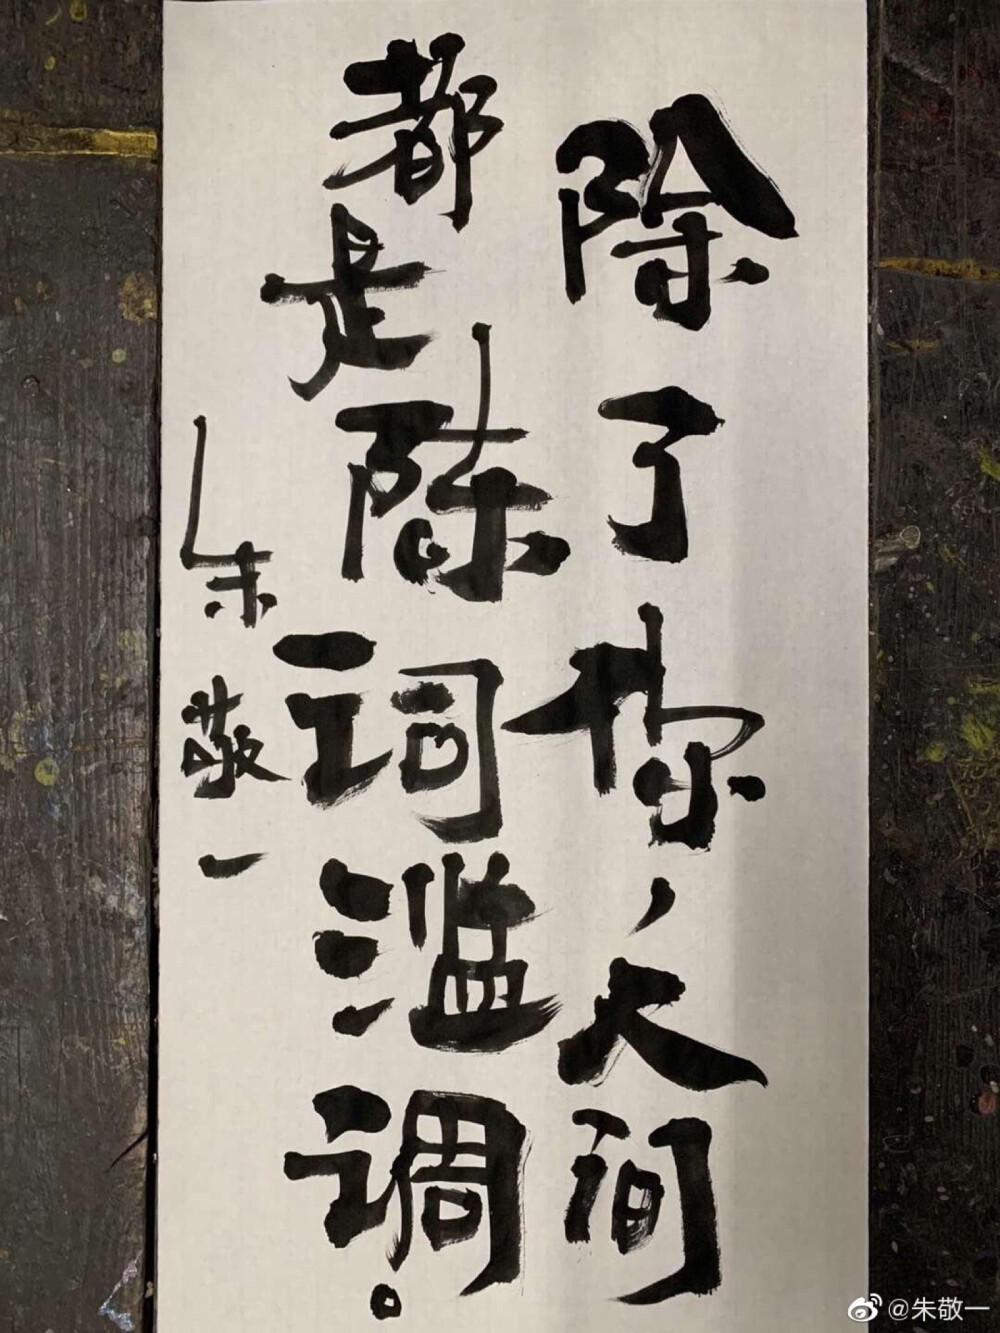 除了你，人间
都是陈词滥调。
朱敬一
@朱敬一